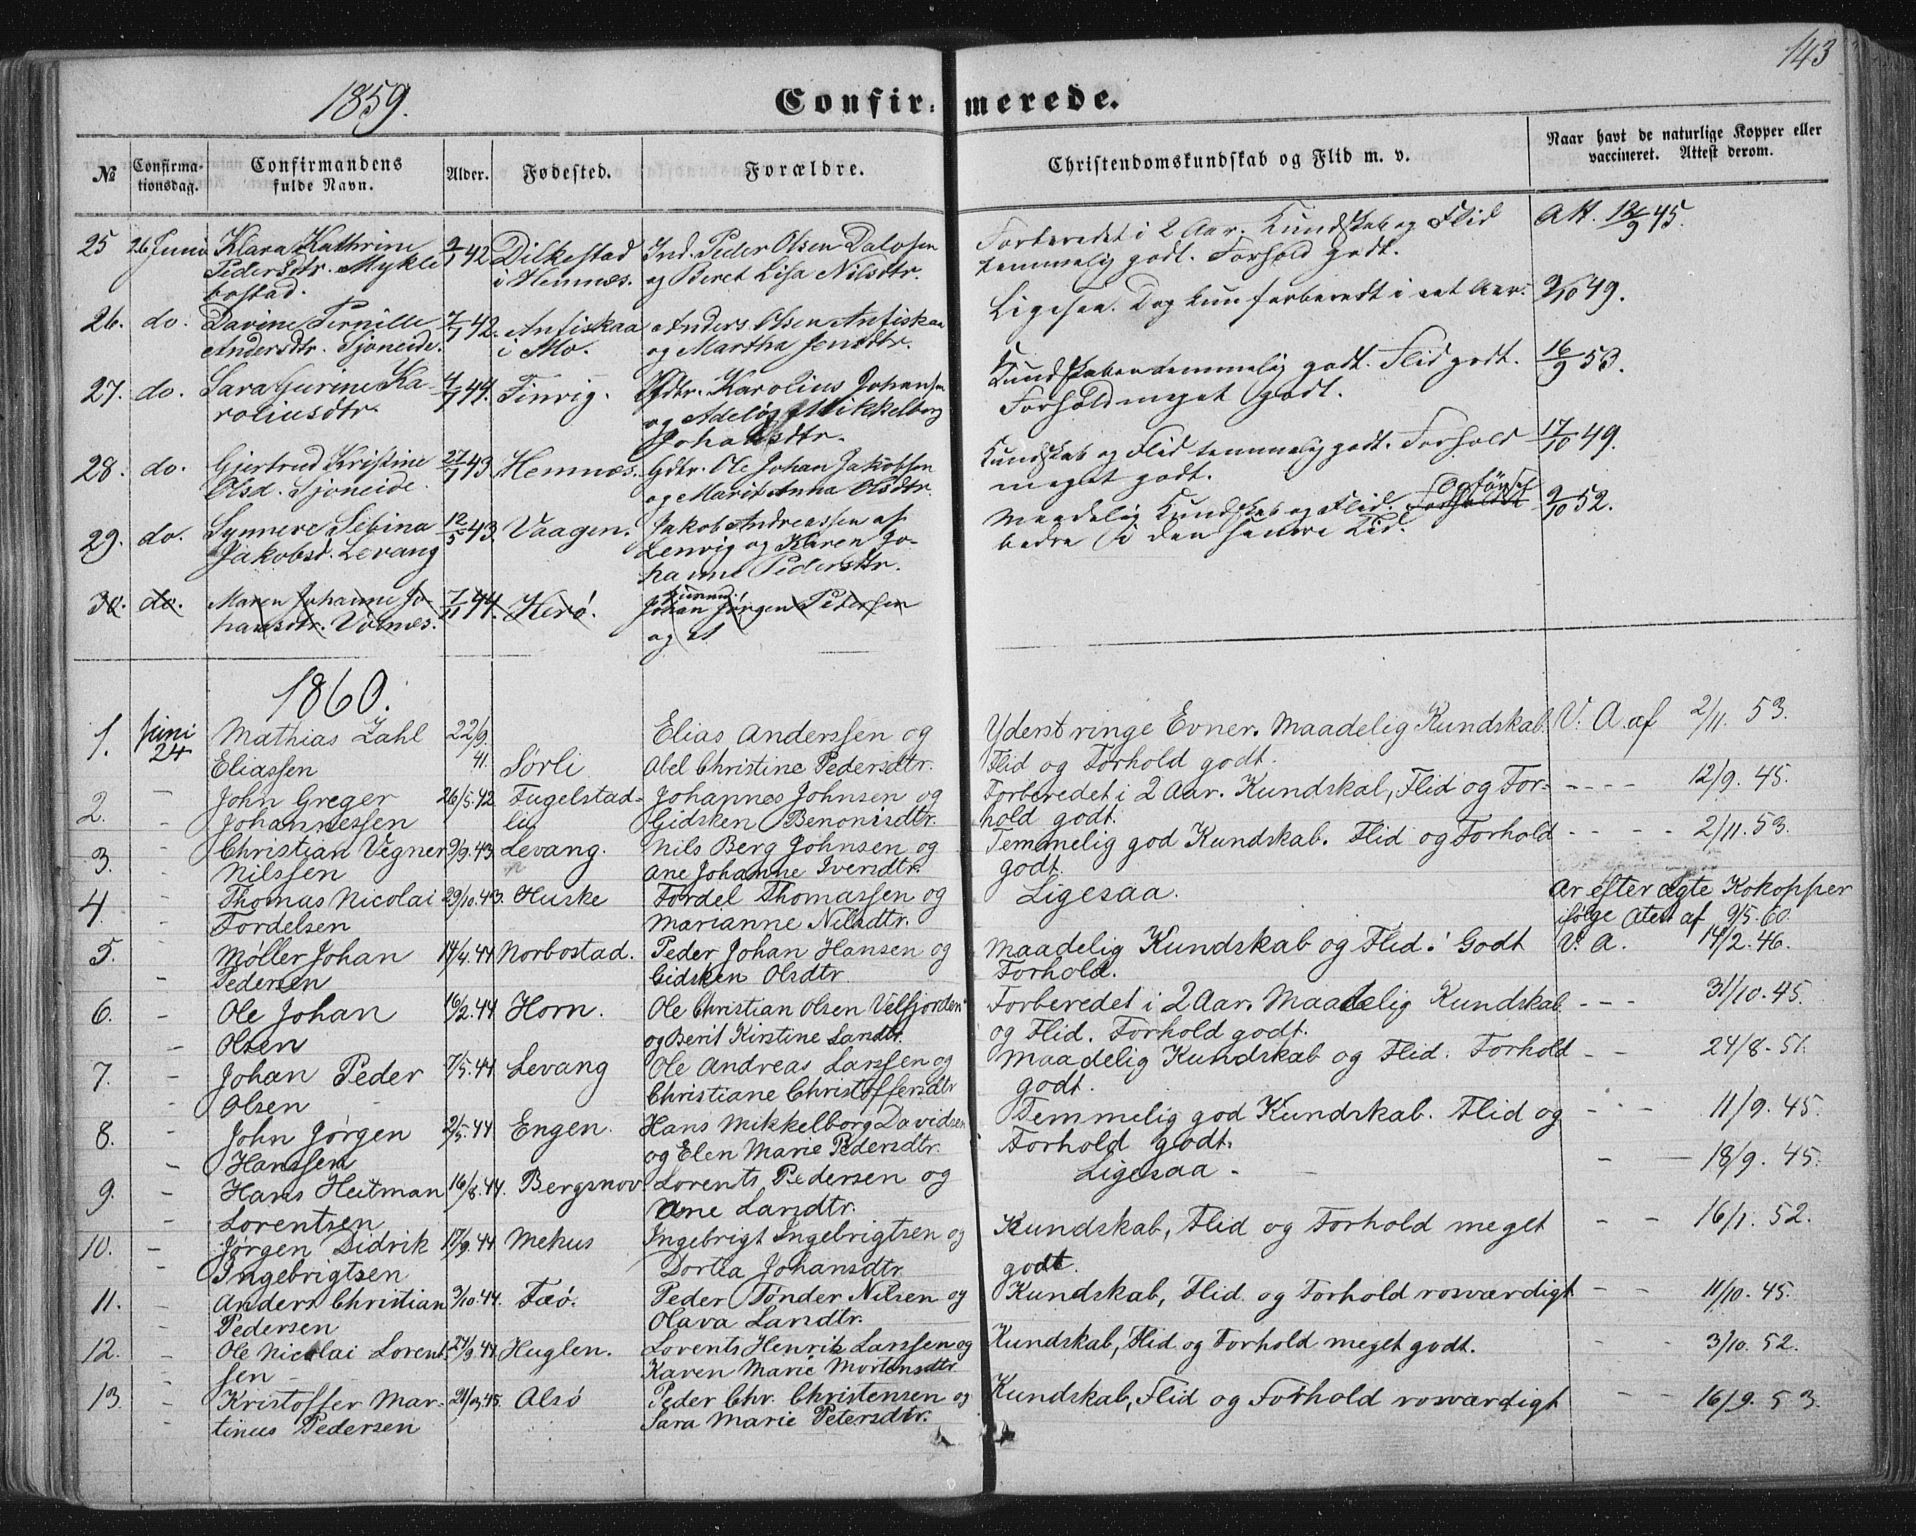 143
1859.
Confirmerede.
№ Confirmationsdag. Confirmandens fulde Navn. Alder. Fødested. Forældre. Christendomskundskab og Flid m. v. Naar havt de naturlige Kopper eller vaccineret. Attest derom.
25 26 Juni Klara Kathrine 2/1 42 Dilkestad Ind. Peder Olsen Dalosen Forberedet i 2 Aar. Kundskab og Flid Att. 12/9 45.
Pedersdtr. Mykle- i Hemnæs. og Beret Lisa Nilsdtr. temmelig godt. Forhold godt.
bostad.
26. do. Davine Pernille 7/1 42. Anfiskaa Anders Olsen Anfiskaa Ligesaa. Dog kun forberedt i eet Aar. 2/10 49.
Andersdtr. Sjoneide. i Mo. og Martha Jensdtr.
27. do. Sara Gurine Ka- 4/1 44. Finvig. Gdtr. Karolius Johansen Kundskaben temmelig godt. Flid godt. 16/9 53.
roliusdtr. og Adeløs Mikkelborg Forhold meget godt.
Johansdtr.
28. do. Gjertrud Kristine 27/1 43. Hemnæs. Gdtr. Ole Johan Jakobsen Kundskab og Flid temmelig godt. Forhold 17/10 49.
Olsd. Sjoneide. og Marit Anna Olsdtr. meget godt.
29. do. Synnere Sebina 12/5 43. Vaagen. Jakob Andreassen af Maadelig Kundskab og Flid. Forholdet Opførsel 2/10 52.
Jakobsd. Levang Lenvig og Karen Jo- bedre i den senere Tid.
hanne Pedersdtr.
30. do. Maren Johanne Jo- 7/11 44. Herø. Johan Jørgen Petersen
hansdtr. Volnæs. og
1860.
1. Juni 24 Mathias Zahl 22/9. 41. Elias Anderssen og Yderst ringe Evner. Maadelig Kundskab. V. A. af 2/11 53.
Eliassen Sørli Abel Christine Pedersdtr. Flid og Forhold godt.
2. - John Greger 26/5.42 Fugelstad- Johannes Johnsen og Forberedet i 2 Aar. Kundskab, Flid og For- - - - - 12/9. 45.
Johannessen li Gidsken Benonisdtr. hold godt.
3. - Christian Vegner 9/9.43 Levang. Nils Berg Johnsen og Temmelig god Kundskab. Flid og Forhold - - - - 2/11. 53.
Nilssen Ane Johanne Iversdtr. godt.
4. - Thomas Nicolai 29/10.43. Huske Fordel Thomassen og Ligesaa. Ar efter ægte Kokopper
Fordelsen Marianne Nilsdtr. ifølge Atest af 9/5. 60.
5. - Møller Johan 14/4.44 Norbostad. Peder Johan Hansen og Maadelig Kundskab og Flid. Godt V. A. 14/2. 46.
Pedersen Gidsken Olsdtr. Forhold.
6. - Ole Johan 16/2.44 Horn. Ole Christian Olsen Velfjorden Forberedet i 2 Aar. Maadelig Kundskab - - - 31/10. 45.
Olsen og Berit Kirstine Larsdtr. og Flid. Forhold godt.
7. - Johan Peder 7/5.44 Levang Ole Andreas Larssen og Maadelig Kundskab og Flid. Forhold - - 24/8. 51.
Olsen Christiane Christoffersdtr godt.
8. - John Jørgen 2/5.44 Engen. Hans Mikkelborg Davidsen Temmelig god Kundskab. Flid og - - - 11/9. 45.
Hanssen og Elen Marie Pedersdtr. Forhold godt.
9. - Hans Heitman 16/8.44. Bergsnov Lorents Pedersen og Ligesaa - - - 18/9. 45.
Lorentsen Ane Larsdtr.
10. - Jørgen Didrik 17/9.44 Mehus Ingebrigt Ingebrigtsen og Kundskab, Flid og Forhold meget - - 16/1. 52.
Ingebrigtsen Dortea Johansdtr. godt.
11. - Anders Christian 3/10.44. Færø. Peder Tønder Nilsen og Kundskab, Flid og Forhold rosværdigt - - 11/10. 45.
Pedersen Olava Larsdtr.
12. - Ole Nicolai Lorent- 24/9.44 Huglen. Lorents Henrik Larssen og Kundskab, Flid og Forhold meget godt. - - 3/10. 52.
sen Karen Marie Mortensdtr
13 - Kristoffer Mar- 21/3.45. Alsø Peder Chr. Christensen og Kundskab, Flid og Forhold rosværdigt - - 16/9. 53.
tinus Pedersen Sara Marie Petersdtr.